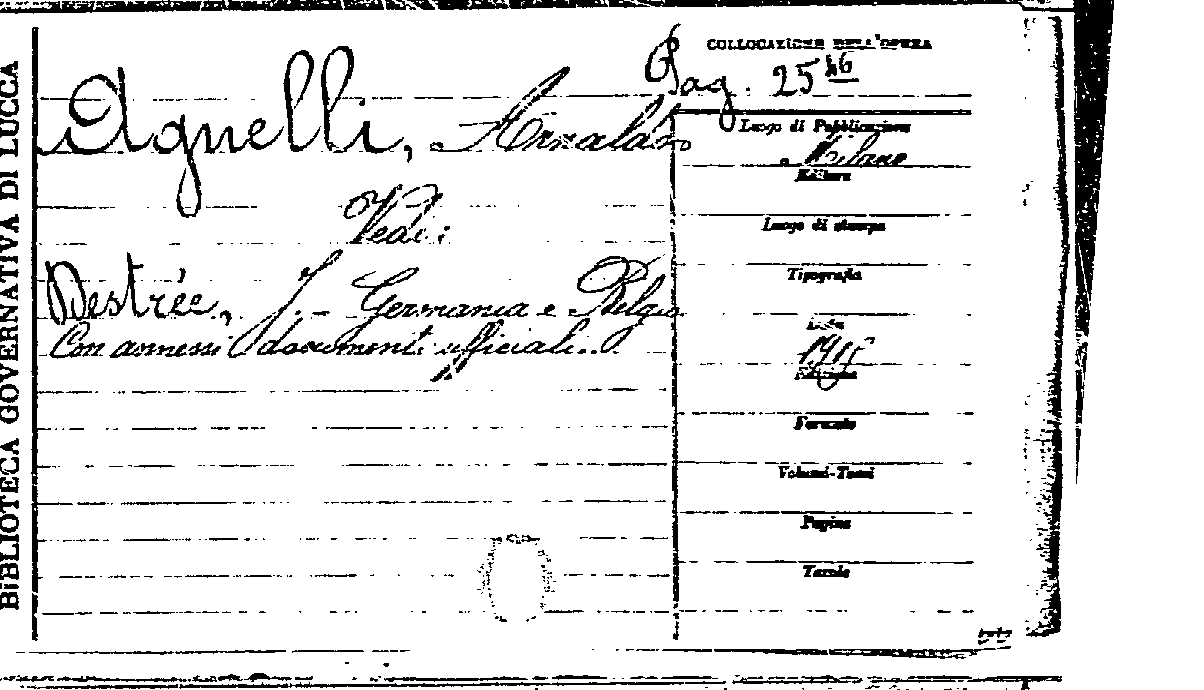 BIBLIOTECA GOVERNATIVA DI LUCCA
COLLOCAZIONE DELL'OPERA
Pag. 25
Agnelli, Arnaldo
Vedi:
Destrée, J. - Germania e Belgio
Con annessi documenti ufficiali..
Luogo di Pubblicazione
Milano
Editore
Luogo di stampa
Tipografia
Data
1915
Edizione
Formato
Volumi-Tomi
Pagine
Tavole